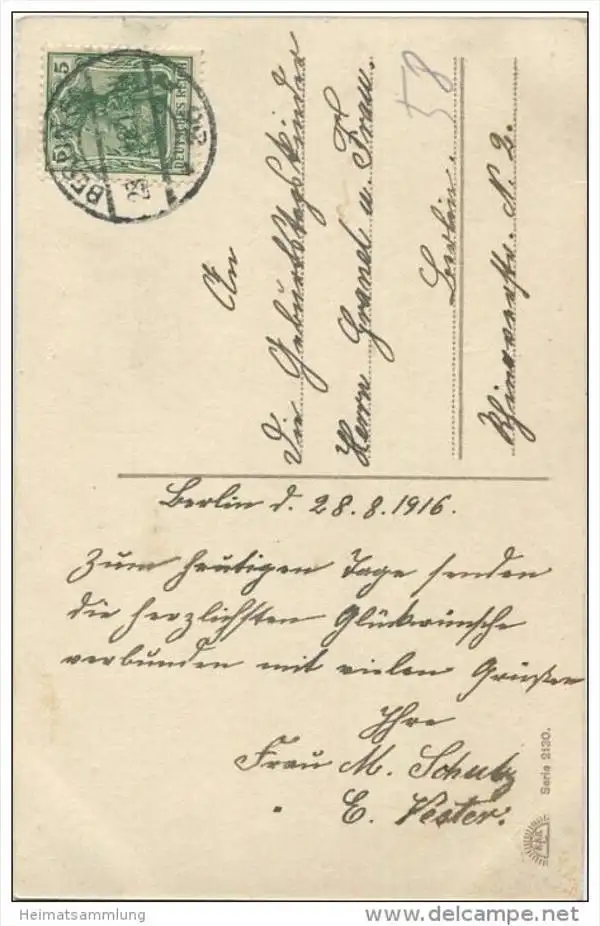 5
DEUTSCHES REICH
BERLIN
58
An
die Geburtstagskinder
Herrn Granel u. Frau.
Berlin.
N 2.
Berlin d. 28.8.1916.
Zum heutigen Tage senden
die herzlichsten Glückwünsche
verbunden mit vielen Grüßen
Ihre
Frau M. Schulz
E. Vester.
Serie 2130.
Heimatsammlung
www.delcampe.net